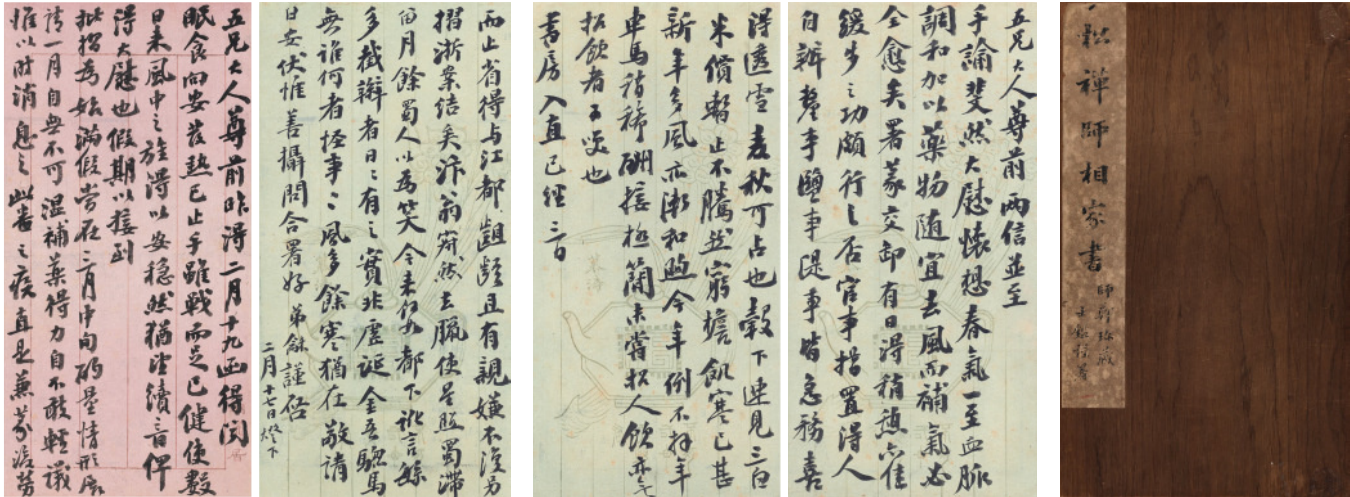 松禪師相家書
五兄大人尊前兩信並至
手諭斐然大慰懷想春氣一至血脈
調和加以藥物隨宜去風而補氣必
全愈矣署篆交卸有日得稍憩亦佳
緩步之功頗行之否官事措置得人
自辦釐事鹽事隄事皆急務喜
得透雪麦秋可占也轂下連見三白
米價暫止不騰然窮檐飢寒已甚
新年多風亦漸和煦今年例不拜年
車馬稍稀酬接極簡未嘗招人飲亦無
招飲者可笑也
書房入直已經三日
而止省得与江都齟齬且有親嫌不復另
摺浙案結矣汴翁窘然去臘使星照蜀滯
留月餘蜀人以為笑今未都下訛言
多截辮者日日有之實非虛誕金吾驄馬
無誰何者怪事怪事風多餘寒猶在敬請
日安伏惟善攝問合署好弟龢謹啓
二月十七日燈下
五兄大人尊前昨得二月十九函得闻
眠食向安發熱已止手雖戰而足已健使數
日來風中之旌得以安穩然猶望續音俾
得大慰也假期以接到
批摺為始滿假當在三月中旬酌量情形展
請一月自無不可溫補藥得力自不敢輕議
惟以時消息之此番之疾直是